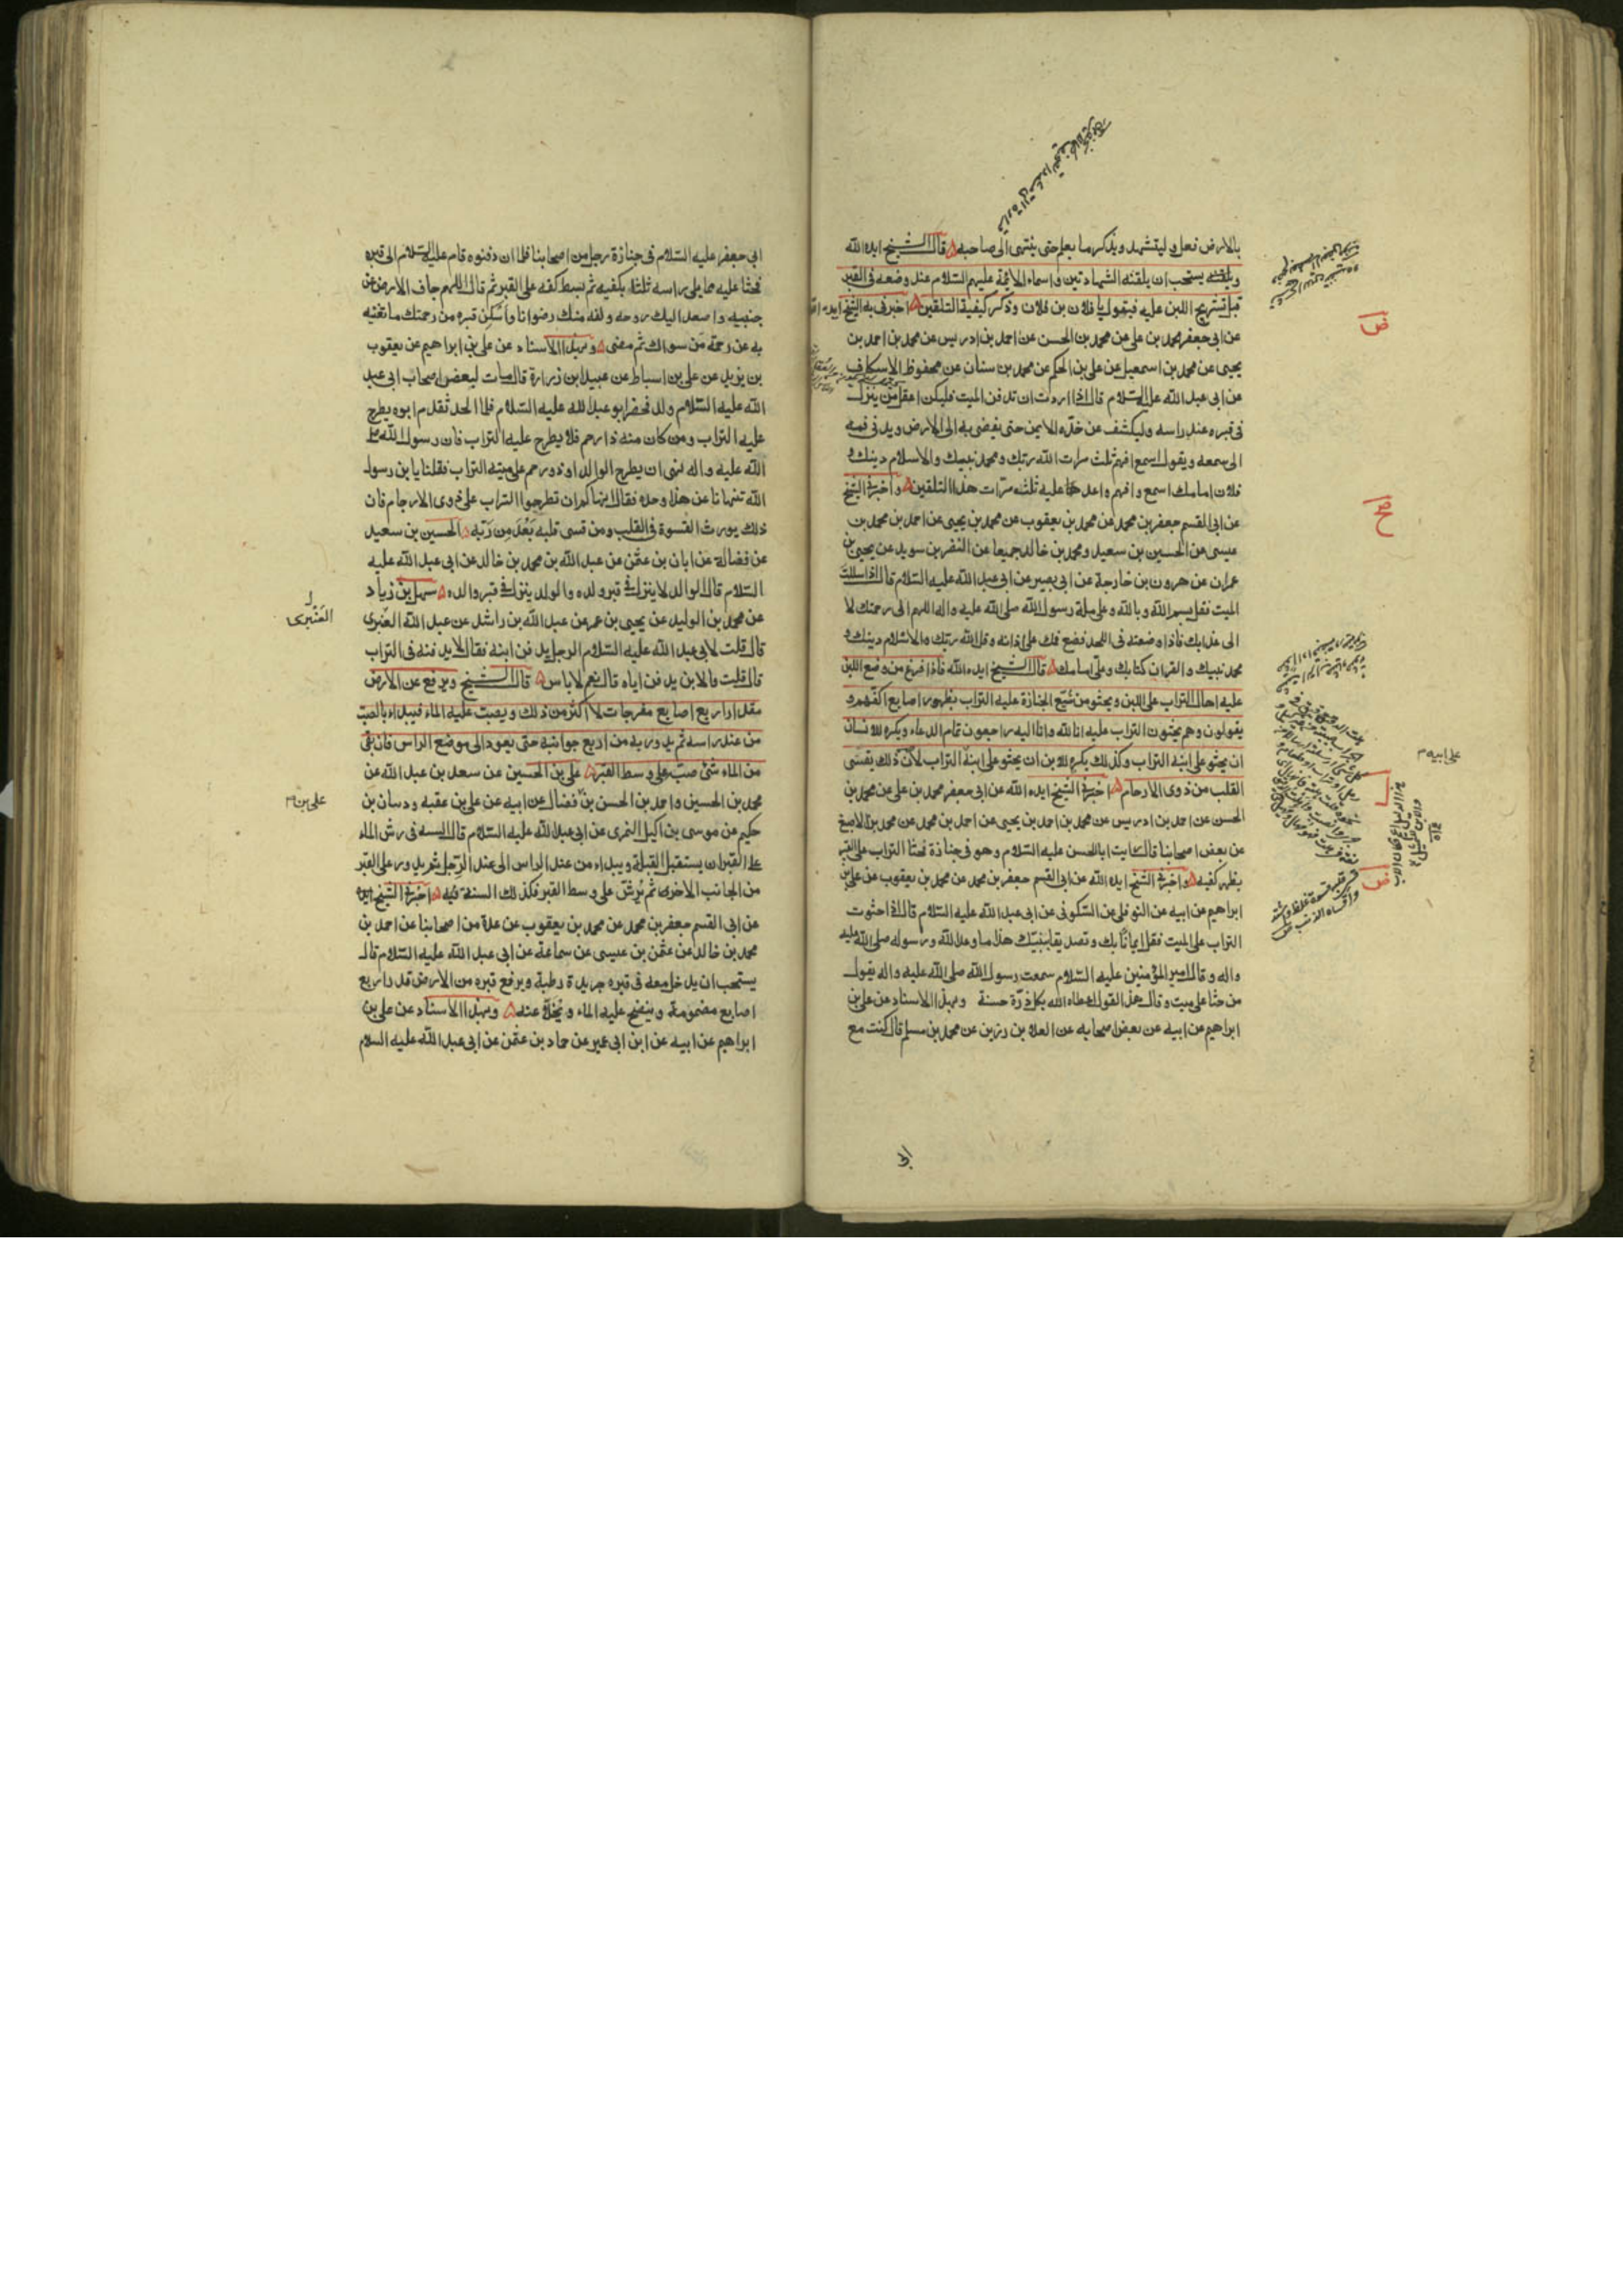 بالارض فعل وليتشهد ويذكر ما يعلم حتى ينتهى الى صاحبه قال الشيخ ايده الله
ويلقنه يستحب ان يلقنه الشهادتين واسماء الائمة عليهم السلام عند وضعه فى القبر
قبل تشريج اللبن عليه فيقول يا فلان بن فلان وذكر كيفية التلقين اخبرنى به الشيخ ايده الله
عن ابى جعفر محمد بن على عن محمد بن الحسن عن احمد بن ادريس عن محمد بن احمد بن
يحيى عن محمد بن اسمعيل عن على بن الحكم عن محمد بن سنان عن محفوظ الاسكاف
عن ابى عبد الله عليه السلام قال اذا اردت ان تدفن الميت فليكن اعقل من ينزل
فى قبره عند راسه وليكشف عن خده الايمن حتى يفضى به الى الارض ويدنى فمه
الى سمعه ويقول اسمع افهم ثلث مرات الله ربك ومحمد نبيك والاسلام دينك و
فلان امامك اسمع وافهم واعدها عليه ثلث مرات هذا التلقين واخبرنى الشيخ
عن ابى القسم جعفر بن محمد عن محمد بن يعقوب عن محمد بن يحيى عن احمد بن محمد بن
عيسى عن الحسين بن سعيد ومحمد بن خالد جميعا عن النضر بن سويد عن يحيى بن
عمران عن هرون بن خارجة عن ابى بصير عن ابى عبد الله عليه السلام قال اذا سللت
الميت فقل بسم الله وبالله وعلى ملة رسول الله صلى الله عليه واله اللهم الى رحمتك لا
الى عذابك فاذا وضعته فى اللحد فضع فمك على اذانه وقل الله ربك والاسلام دينك و
محمد نبيك والقران كتابك وعلى امامك قال الشيخ ايده الله فاذا فرغ من وضع اللبن
عليه اهال التراب على اللبن ويحثو من شيع الجنازة عليه التراب بظهور اصابع اكفهم و
يقولون وهم يحثون التراب عليه انا لله وانا اليه راجعون تمام الدعاء ويكره للانسان
ان يحثو على ابنه التراب وكذلك يكره للابن ان يحثو على ابيه التراب لان ذلك يقسى
القلب من ذوى الارحام اخبرنى الشيخ ايده الله عن ابى جعفر محمد بن على عن محمد بن
الحسن عن احمد بن ادريس عن محمد بن احمد بن يحيى عن احمد بن محمد عن محمد بن الاصبغ
عن بعض اصحابنا قال رايت ابا الحسن عليه السلام وهو فى جنازة فحثا التراب على القبر
بظهر كفيه واخبرنى الشيخ ايده الله عن ابى القسم جعفر بن محمد عن محمد بن يعقوب عن على بن
ابراهيم عن ابيه عن النوفلى عن السكونى عن ابى عبد الله عليه السلام قال اذا حثوت
التراب على الميت فقل ايمانا بك وتصديقا بنبيك هذا ما وعد الله ورسوله صلى الله عليه
واله وقال امير المؤمنين عليه السلام سمعت رسول الله صلى الله عليه واله يقول
من حثا على ميت وقال هذا القول اعطاه الله بكل ذرة حسنة وبهذا الاسناد عن على بن
ابراهيم عن ابيه عن بعض اصحابه عن العلا بن رزين عن محمد بن مسلم قال كنت مع
على ابيه م
ابى
ابى جعفر عليه السلام فى جنازة رجل من اصحابنا فلما ان دفنوه قام عليه السلام الى قبره
فحثا عليه مما يلى راسه ثلثا بكفيه ثم بسط كفه على القبر ثم قال اللهم جاف الارض عن
جنبيه واصعد اليك روحه ولقه منك رضوانا واسكن قبره من رحمتك ما تغنيه
به عن رحمة من سواك ثم مضى وبهذا الاسناد عن على بن ابراهيم عن يعقوب
بن يزيد عن على بن اسباط عن عبيد بن زرارة قال مات لبعض اصحاب ابى عبد
الله عليه السلام ولد فحضر ابو عبد الله عليه السلام فلما الحد تقدم ابوه يطرح
عليه التراب ومن كان منه ذا رحم فلا يطرح عليه التراب فان رسول الله صلى
الله عليه واله نهى ان يطرح الوالد او ذو رحم على ميته التراب فقلنا يا بن رسول
الله تنهانا عن هذا وحده فقال انهاكم ان تطرحوا التراب على ذوى الارحام فان
ذلك يورث القسوة فى القلب ومن قسى قلبه بعد من ربه الحسين بن سعيد
عن فضالة عن ابان بن عثمن عن عبد الله بن محمد بن خالد عن ابى عبد الله عليه
السلام قال الوالد لا ينزل فى قبر ولده والولد ينزل فى قبر والده سهل بن زياد
عن محمد بن الوليد عن يحيى بن عمر عن عبد الله بن راشد عن عبد الله العنبرى
العنبرى
قال قلت لابى عبد الله عليه السلام الرجل يدفن ابنه فقال لا يدفنه فى التراب
قال قلت فالابن يدفن اباه قال نعم لا باس قال الشيخ ويرفع عن الارض
مقدار اربع اصابع مفرجات لا اكثر من ذلك ويصب عليه الماء فيبداء بالصب
من عند راسه ثم يدور به من اربع جوانبه حتى يعود الى موضع الراس فان بقى
من الماء شئ صب على وسط القبر على بن الحسين عن سعد بن عبد الله عن
محمد بن الحسين واحمد بن الحسن بن فضال عن ابيه عن على بن عقبه وذبيان بن
على بن م
حكيم عن موسى بن اكيل النمرى عن ابى عبد الله عليه السلام قال السنة فى رش الماء
على القبر ان يستقبل القبلة ويبداء من عند الراس الى عند الرجل ثم يدور على القبر
من الجانب الاخر ثم يرش على وسط القبر فكذلك السنة فيه اخبرنى الشيخ ايده
عن ابى القسم جعفر بن محمد عن محمد بن يعقوب عن عدة من اصحابنا عن احمد بن
محمد بن خالد عن عثمن بن عيسى عن سماعة عن ابى عبد الله عليه السلام قال
يستحب ان يدخل معه فى قبره جريدة رطبة ويرفع قبره من الارض قدر اربع
اصابع مضمومة وينضح عليه الماء ويخلا عنه وبهذا الاسناد عن على بن
ابراهيم عن ابيه عن ابن ابى عمير عن حماد بن عثمن عن ابى عبد الله عليه السلام